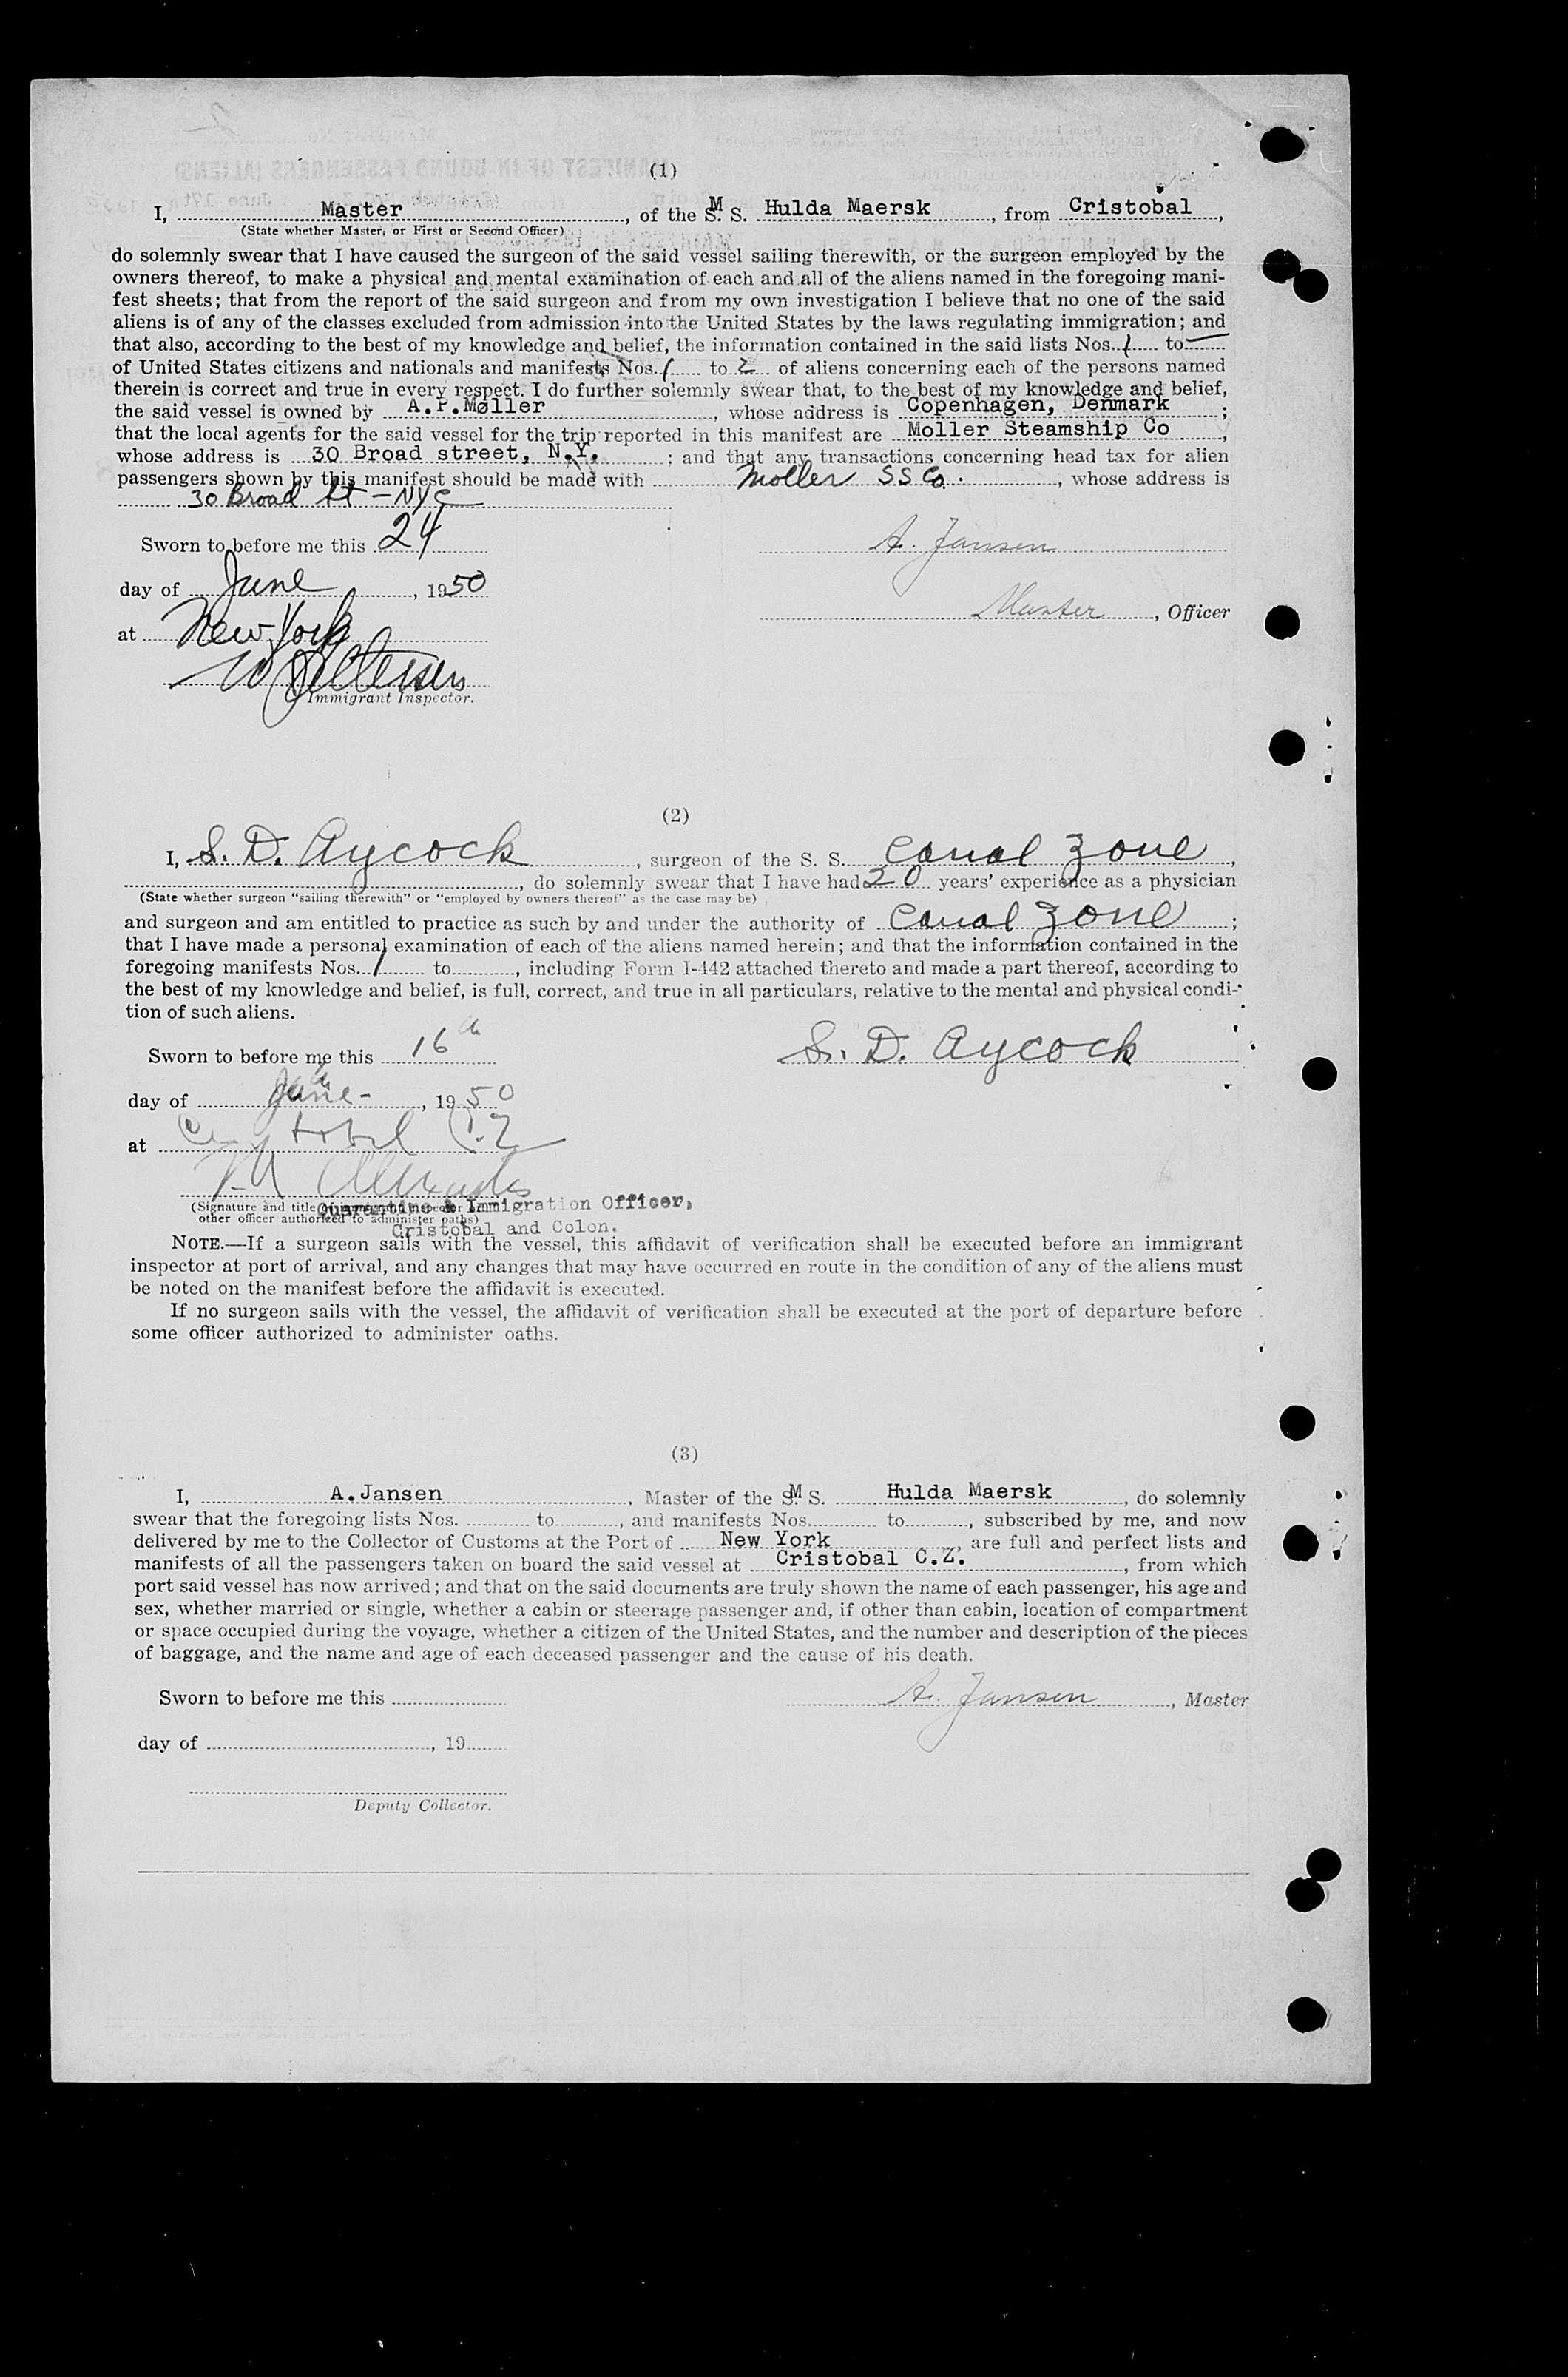 (1)
I, Master, of the M. S. Hulda Maersk, from Cristobal,
(State whether Master, or First or Second Officer)
do solemnly swear that I have caused the surgeon of the said vessel sailing therewith, or the surgeon employed by the
owners thereof, to make a physical and mental examination of each and all of the aliens named in the foregoing mani-
fest sheets; that from the report of the said surgeon and from my own investigation I believe that no one of the said
aliens is of any of the classes excluded from admission into the United States by the laws regulating immigration; and
that also, according to the best of my knowledge and belief, the information contained in the said lists Nos. 1 to —
of United States citizens and nationals and manifests Nos. 1 to 2 of aliens concerning each of the persons named
therein is correct and true in every respect. I do further solemnly swear that, to the best of my knowledge and belief,
the said vessel is owned by A.P.Møller, whose address is Copenhagen, Denmark;
that the local agents for the said vessel for the trip reported in this manifest are Moller Steamship Co,
whose address is 30 Broad street, N.Y.; and that any transactions concerning head tax for alien
passengers shown by this manifest should be made with Moller SS Co., whose address is
30 Broad St - NYC
Sworn to before me this 24
A. Jansen
day of June, 1950
Master, Officer
at New York
Immigrant Inspector.
(2)
I, S. D. Aycock, surgeon of the S. S. Canal Zone,
, do solemnly swear that I have had 20 years' experience as a physician
(State whether surgeon "sailing therewith" or "employed by owners thereof" as the case may be)
and surgeon and am entitled to practice as such by and under the authority of Canal Zone;
that I have made a personal examination of each of the aliens named herein; and that the information contained in the
foregoing manifests Nos. 1 to, including Form I-442 attached thereto and made a part thereof, according to
the best of my knowledge and belief, is full, correct, and true in all particulars, relative to the mental and physical condi-
tion of such aliens.
Sworn to before me this 16th
S. D. Aycock
day of June -, 1950
at Cristobal C.Z
(Signature and title of immigrant inspector or
Quarantine & Immigration Officer,
other officer authorized to administer oaths)
Cristobal and Colon.
NOTE.—If a surgeon sails with the vessel, this affidavit of verification shall be executed before an immigrant
inspector at port of arrival, and any changes that may have occurred en route in the condition of any of the aliens must
be noted on the manifest before the affidavit is executed.
If no surgeon sails with the vessel, the affidavit of verification shall be executed at the port of departure before
some officer authorized to administer oaths.
(3)
I, A.Jansen, Master of the M. S. Hulda Maersk, do solemnly
swear that the foregoing lists Nos. to, and manifests Nos. to, subscribed by me, and now
delivered by me to the Collector of Customs at the Port of New York, are full and perfect lists and
manifests of all the passengers taken on board the said vessel at Cristobal C.Z., from which
port said vessel has now arrived; and that on the said documents are truly shown the name of each passenger, his age and
sex, whether married or single, whether a cabin or steerage passenger and, if other than cabin, location of compartment
or space occupied during the voyage, whether a citizen of the United States, and the number and description of the pieces
of baggage, and the name and age of each deceased passenger and the cause of his death.
Sworn to before me this
A. Jansen, Master
day of, 19
Deputy Collector.